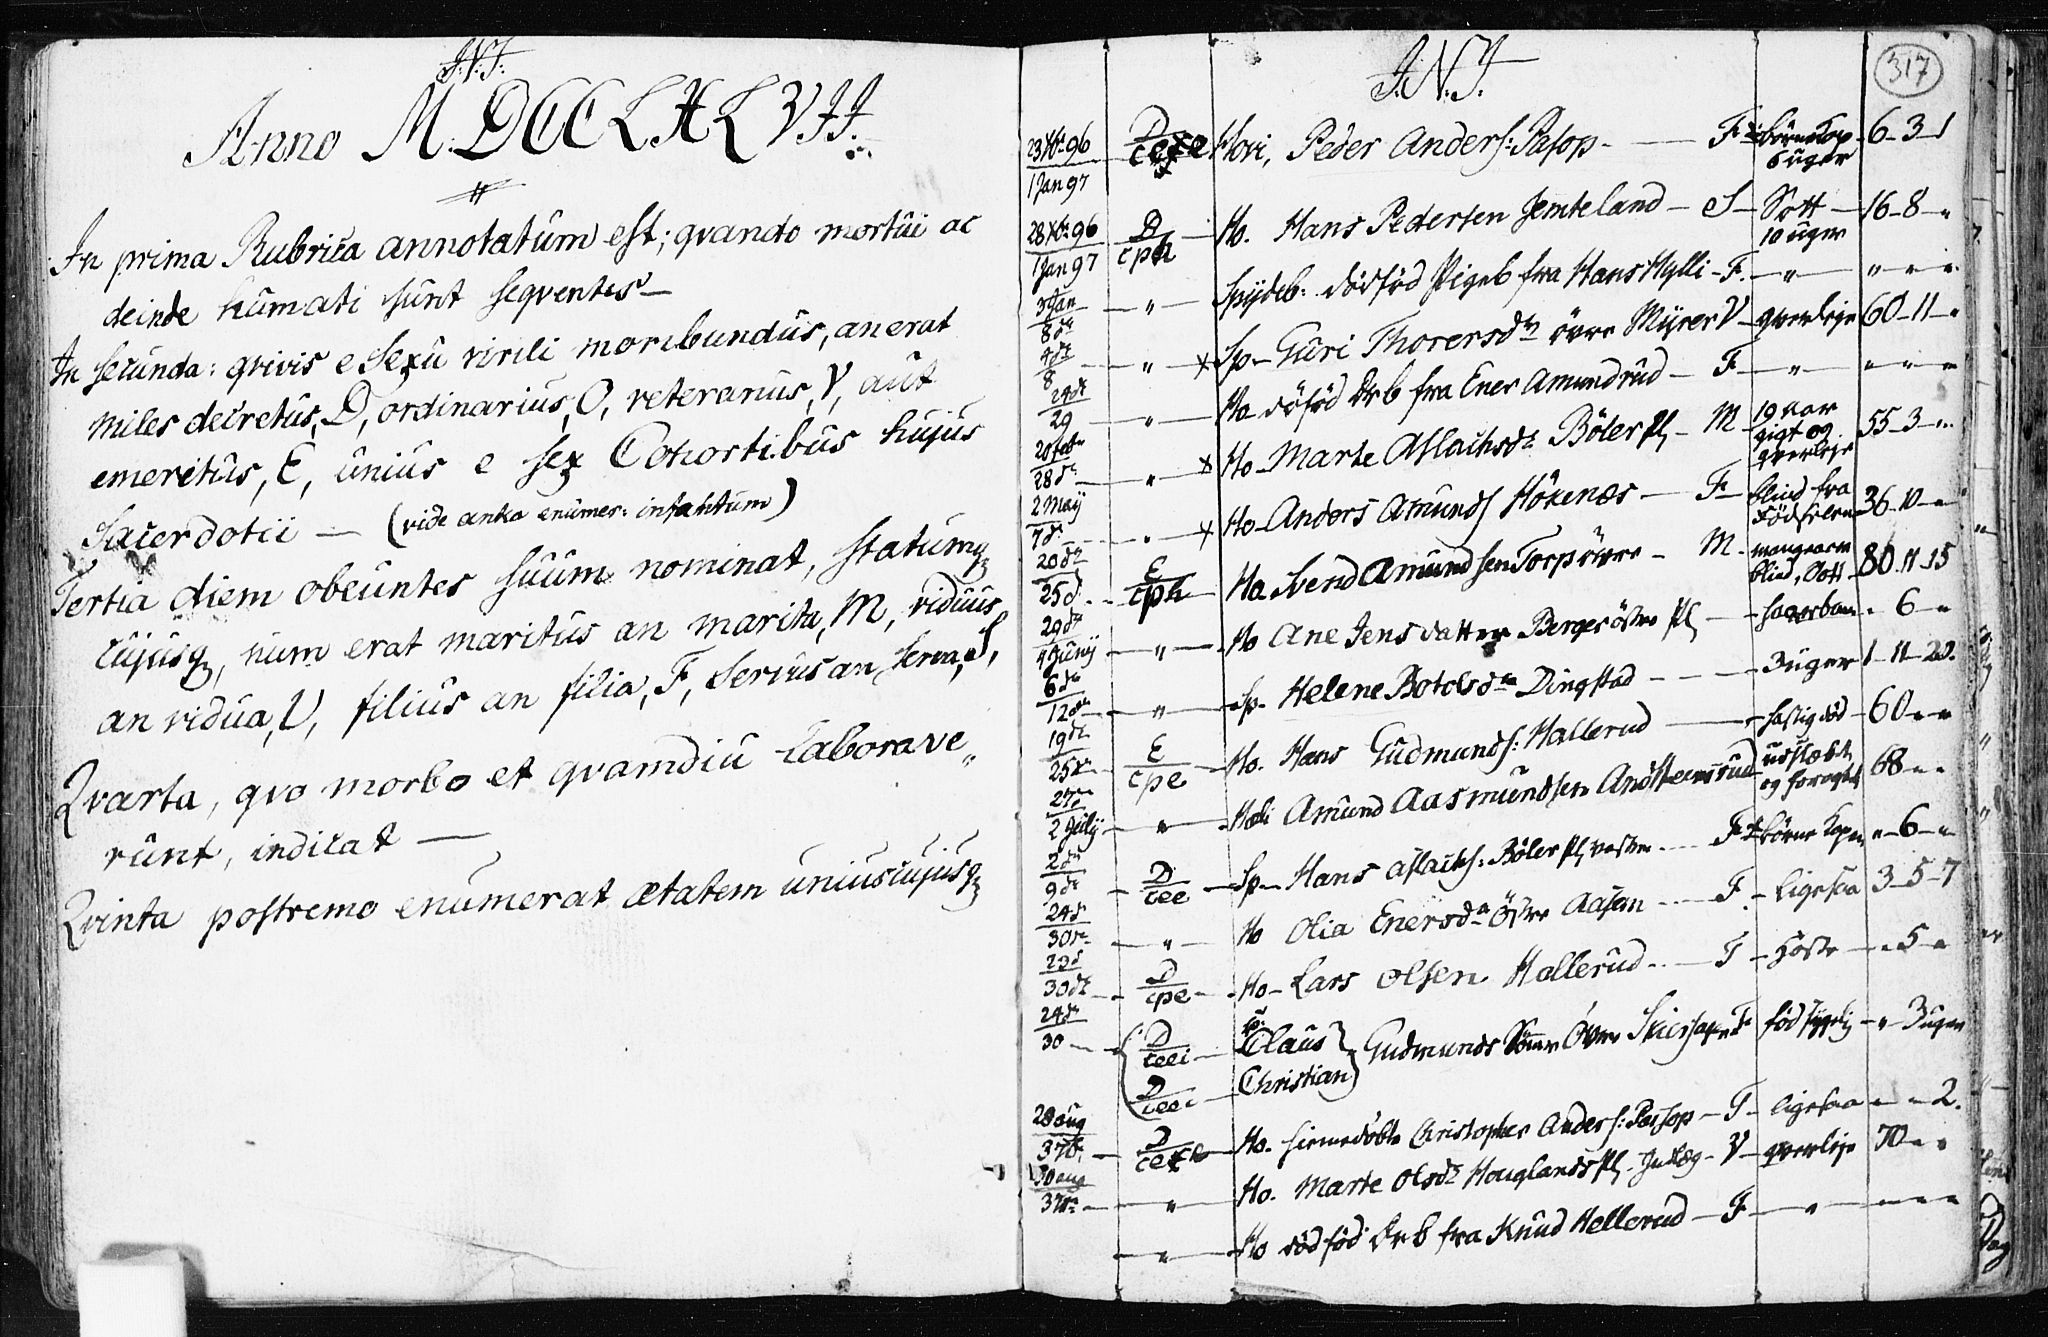 J:N:J:
Anno M.DCCLXLVII.
In prima Rubrica annotatum est; qvando mortui ac
deinde humati sunt seqventes —
In secunda: qvivis e Sexu virili moribundus, an erat
Miles decretus, D, ordinarius, O, veteranus, V, aut
emeritus, E, unius e sex Cohortibus hujus
Sacerdotii — (vide antea enumer: infantum)
Tertia diem obeuntes suum nominat, statumq
cujusq, num erat maritus an marita, M, viduus
an vidua, V, filius an filia, F, servus an serva, S,
Qvarta, qvo morbo et qvamdiu laborave„
runt, indicat —
Qvinta postremo enumerat ætatem uniuscujusq
J:N:J:
317
23 Xbr 96
1 Jan 97
D
Hovi, Peder Anders: Pasop - — F - börnekop 6 uger - 6-3-1
28 Xbr 96
1 Jan 97
D
cph
Ho. Hans Pedersen Jemteland - S - Sott 10 uger - 16-8-„
3 Jan
8 d
— „ — Spydeb: dödföd Pigeb fra Hans Hylli - F. - „ - „ - „ - „
4 dt
8
— „ — x Sp- Guri Thorersdr övre Myrer V - qverleje 60-11-„
24 dt
29
— „ — Ho döföd Drb fra Ener Amundrud - F - „ - „ - „ - „
20 febr
28 d
— „ — x Ho- Marte Aslachsdr Böler Pl - M - 19 aar gigt og qverleje 55-3-„
2 May
7 d
- „ - x Ho- Anders Amunds Hökenæs - F - blind fra Födselen 36-10-„
20 dt
25 d
E
cph
Ho Svend Amundsen Torp övre - M - mange aar blind, Sott 80-11-15
29 dt
4 Juny
— „ — Ho Ane Jens datter Berger östre Pl - - „ 6 - „
6 dt
12 d
— „ — Sp- Helene Botolvsdr Dingstad - - - 3 uger 1-11-20.
19 dt
25 d
E
cpe
Ho. Hans Gudmunds: Hallerud — - hastig död - 60-„-„
27
2 July
— „ — Hæli Amund Aasmundsen udslæbt og foragtet 68-„-„
2 d
9 dt
D
cee
Sp- Hans Aslachs: Böler Pl vestre - F - börne Kopr „-6-„
24 d
30 d
— „ — Ho Olia Enersdr Östre Aasen - F. - ligesaa 3-5-7
23 d
30 dt
D
cpe
Ho- Lars Olsen Hallerud - F - Hoste - „-5-„
24 d
30
D
ceei
D
ceei
Sp:
Claus
Christian
Gudmunds Sönner Övre F föd sygelig - „ 3 uger
28 aug
3 7br
D
Ho. hiemedöbte Christopher Anders: Passop - F - ligesaa - „ - „ - 2.
30 aug
3 7br
— „ — Ho. Marte Olsdr Houglands Pl - Jndlæg - V - qverleje 70-„-„
— „ — Ho dödföd Drb fra Knud Hellerud - F - „ - „ - „ - „